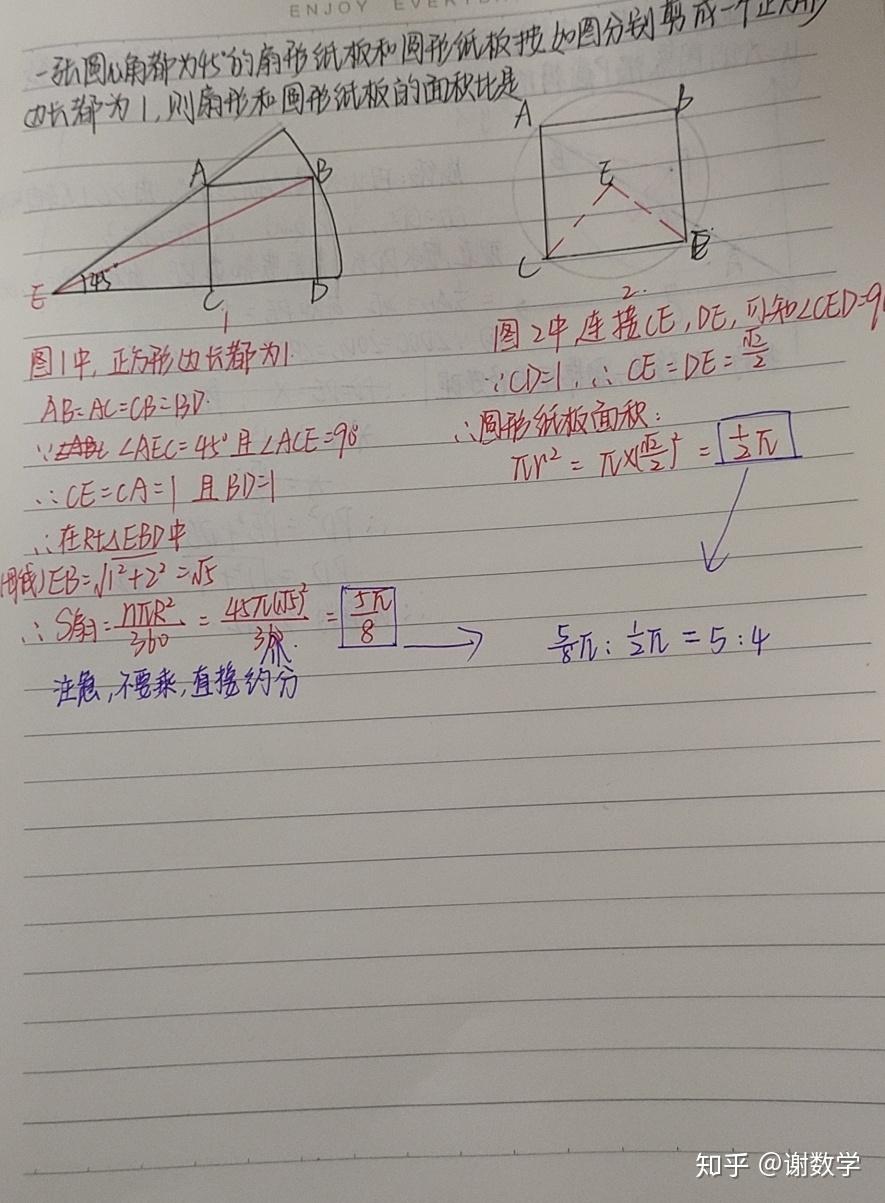 ENJOY EVERY
一张圆心角都为45°的扇形纸板和圆形纸板按如图分别剪成一个正方形
边长都为1,则扇形和圆形纸板的面积比是
A B
E 45° C D
1
A D
E
C B
2.
图1中,正方形边长都为1.
AB=AC=CB=BD.
∵ ∠AEC=45°且∠ACE=90°
∴CE=CA=1 且BD=1
∴在Rt△EBD中
EB=√1²+2²=√5
∴S扇=nπR²/360 = 45π(√5)²/360 = 5π/8
注意,不要乘,直接约分
图2中,连接CE,DE,可知∠CED=90
∵CD=1,∴CE=DE=√2/2
∴圆形纸板面积:
πr²=π×(√2/2)²=1/2π
5/8π:1/2π=5:4
知乎 @谢数学